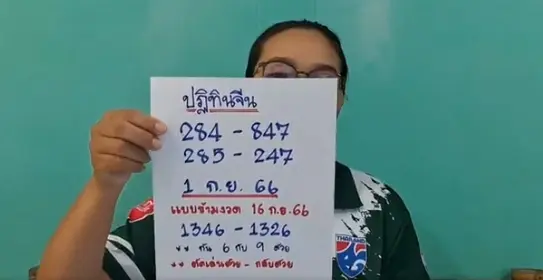 ปฏิทินจีน
284 - 847
285 - 247
1 ก.ย. 66
แบบข้ามงวด 16 ก.ย.66
1346 - 1326
** กัน 6 กับ 9 ด้วย
** คัดเด่นด้วย - กลับด้วย
THAILAND